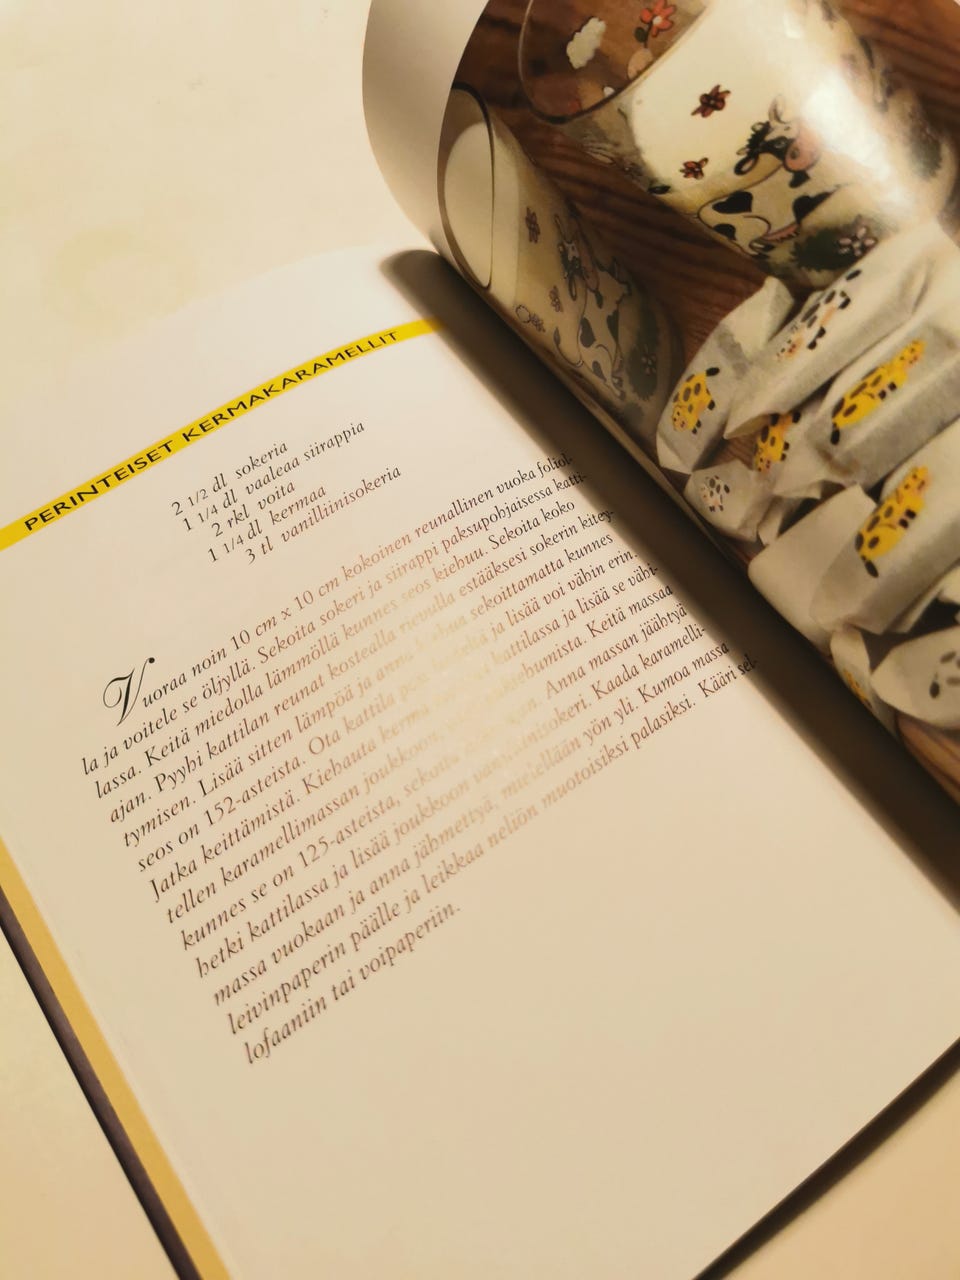 PERINTEISET KERMAKARAMELLIT
2 1/2 dl sokeria
1 1/4 dl vaaleaa siirappia
2 rkl voita
1 1/4 dl kermaa
3 tl vanilliinisokeria
Vuoraa noin 10 cm x 10 cm kokoinen reunallinen vuoka foliol-
la ja voitele se öljyllä. Sekoita sokeri ja siirappi paksupohjaisessa katti-
lassa. Keitä miedolla lämmöllä kunnes seos kiehuu. Sekoita koko
ajan. Pyyhi kattilan reunat kostealla rievulla estääksesi sokerin kitey-
tymisen. Lisää sitten lämpöä ja anna kiehua sekoittamatta kunnes
seos on 152-asteista. Ota kattila pois ja lisää voi vähin erin.
Jatka keittämistä. Kiehauta kerma kattilassa ja lisää se vähi-
tellen karamellimassan joukkoon. kiehumista. Keitä massaa
kunnes se on 125-asteista, sekoita Anna massan jäähtyä
hetki kattilassa ja lisää joukkoon vanilliinisokeri. Kaada karamelli-
massa vuokaan ja anna jähmettyä, mielellään yön yli. Kumoa massa
leivinpaperin päälle ja leikkaa neliön muotoisiksi palasiksi. Kääri sel-
lofaaniin tai voipaperiin.